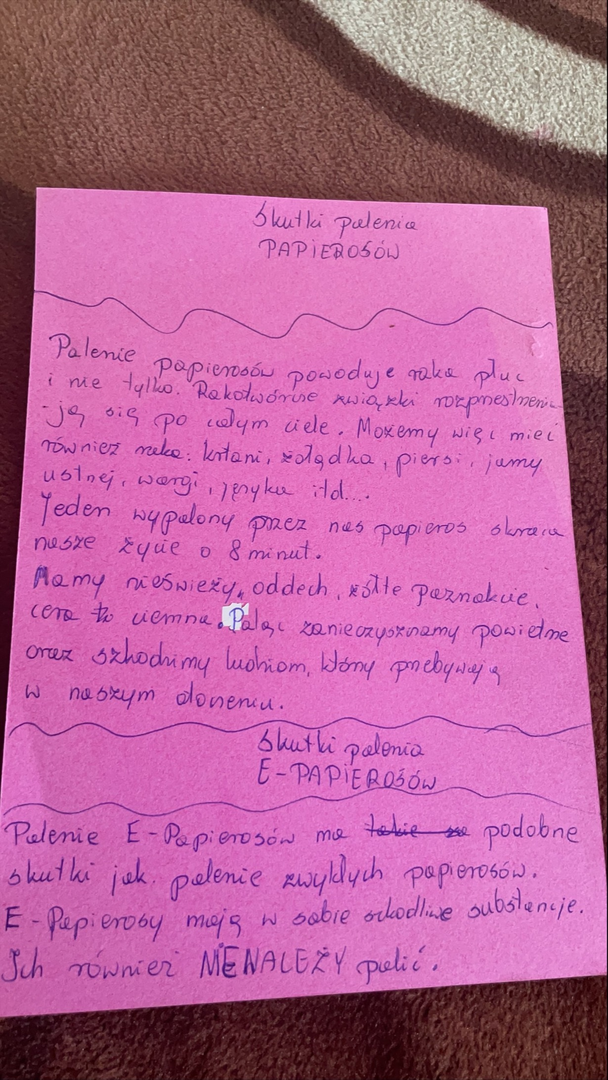 Skutki palenia
PAPIEROSÓW
Palenie papierosów powoduje raka płuc
i nie tylko. Rakotwórcze związki rozprzestrzenia
-ją się po całym ciele. Możemy więc mieć
również raka: krtani, żołądka, piersi, jamy
ustnej, wargi, języka itd...
Jeden wypalony przez nas papieros skraca
nasze życie o 8 minut.
Mamy nieświeży oddech, żółte paznokcie,
cera to ciemna. Paląc zanieczyszczamy powietrze
oraz szkodzimy ludziom, którzy przebywają
w naszym otoczeniu.
Skutki palenia
E-PAPIEROSÓW
Palenie E-Papierosów ma takie sa podobne
skutki jak palenie zwykłych papierosów.
E-Papierosy mają w sobie szkodliwe substancje.
Ich również NIENALEŻY palić.